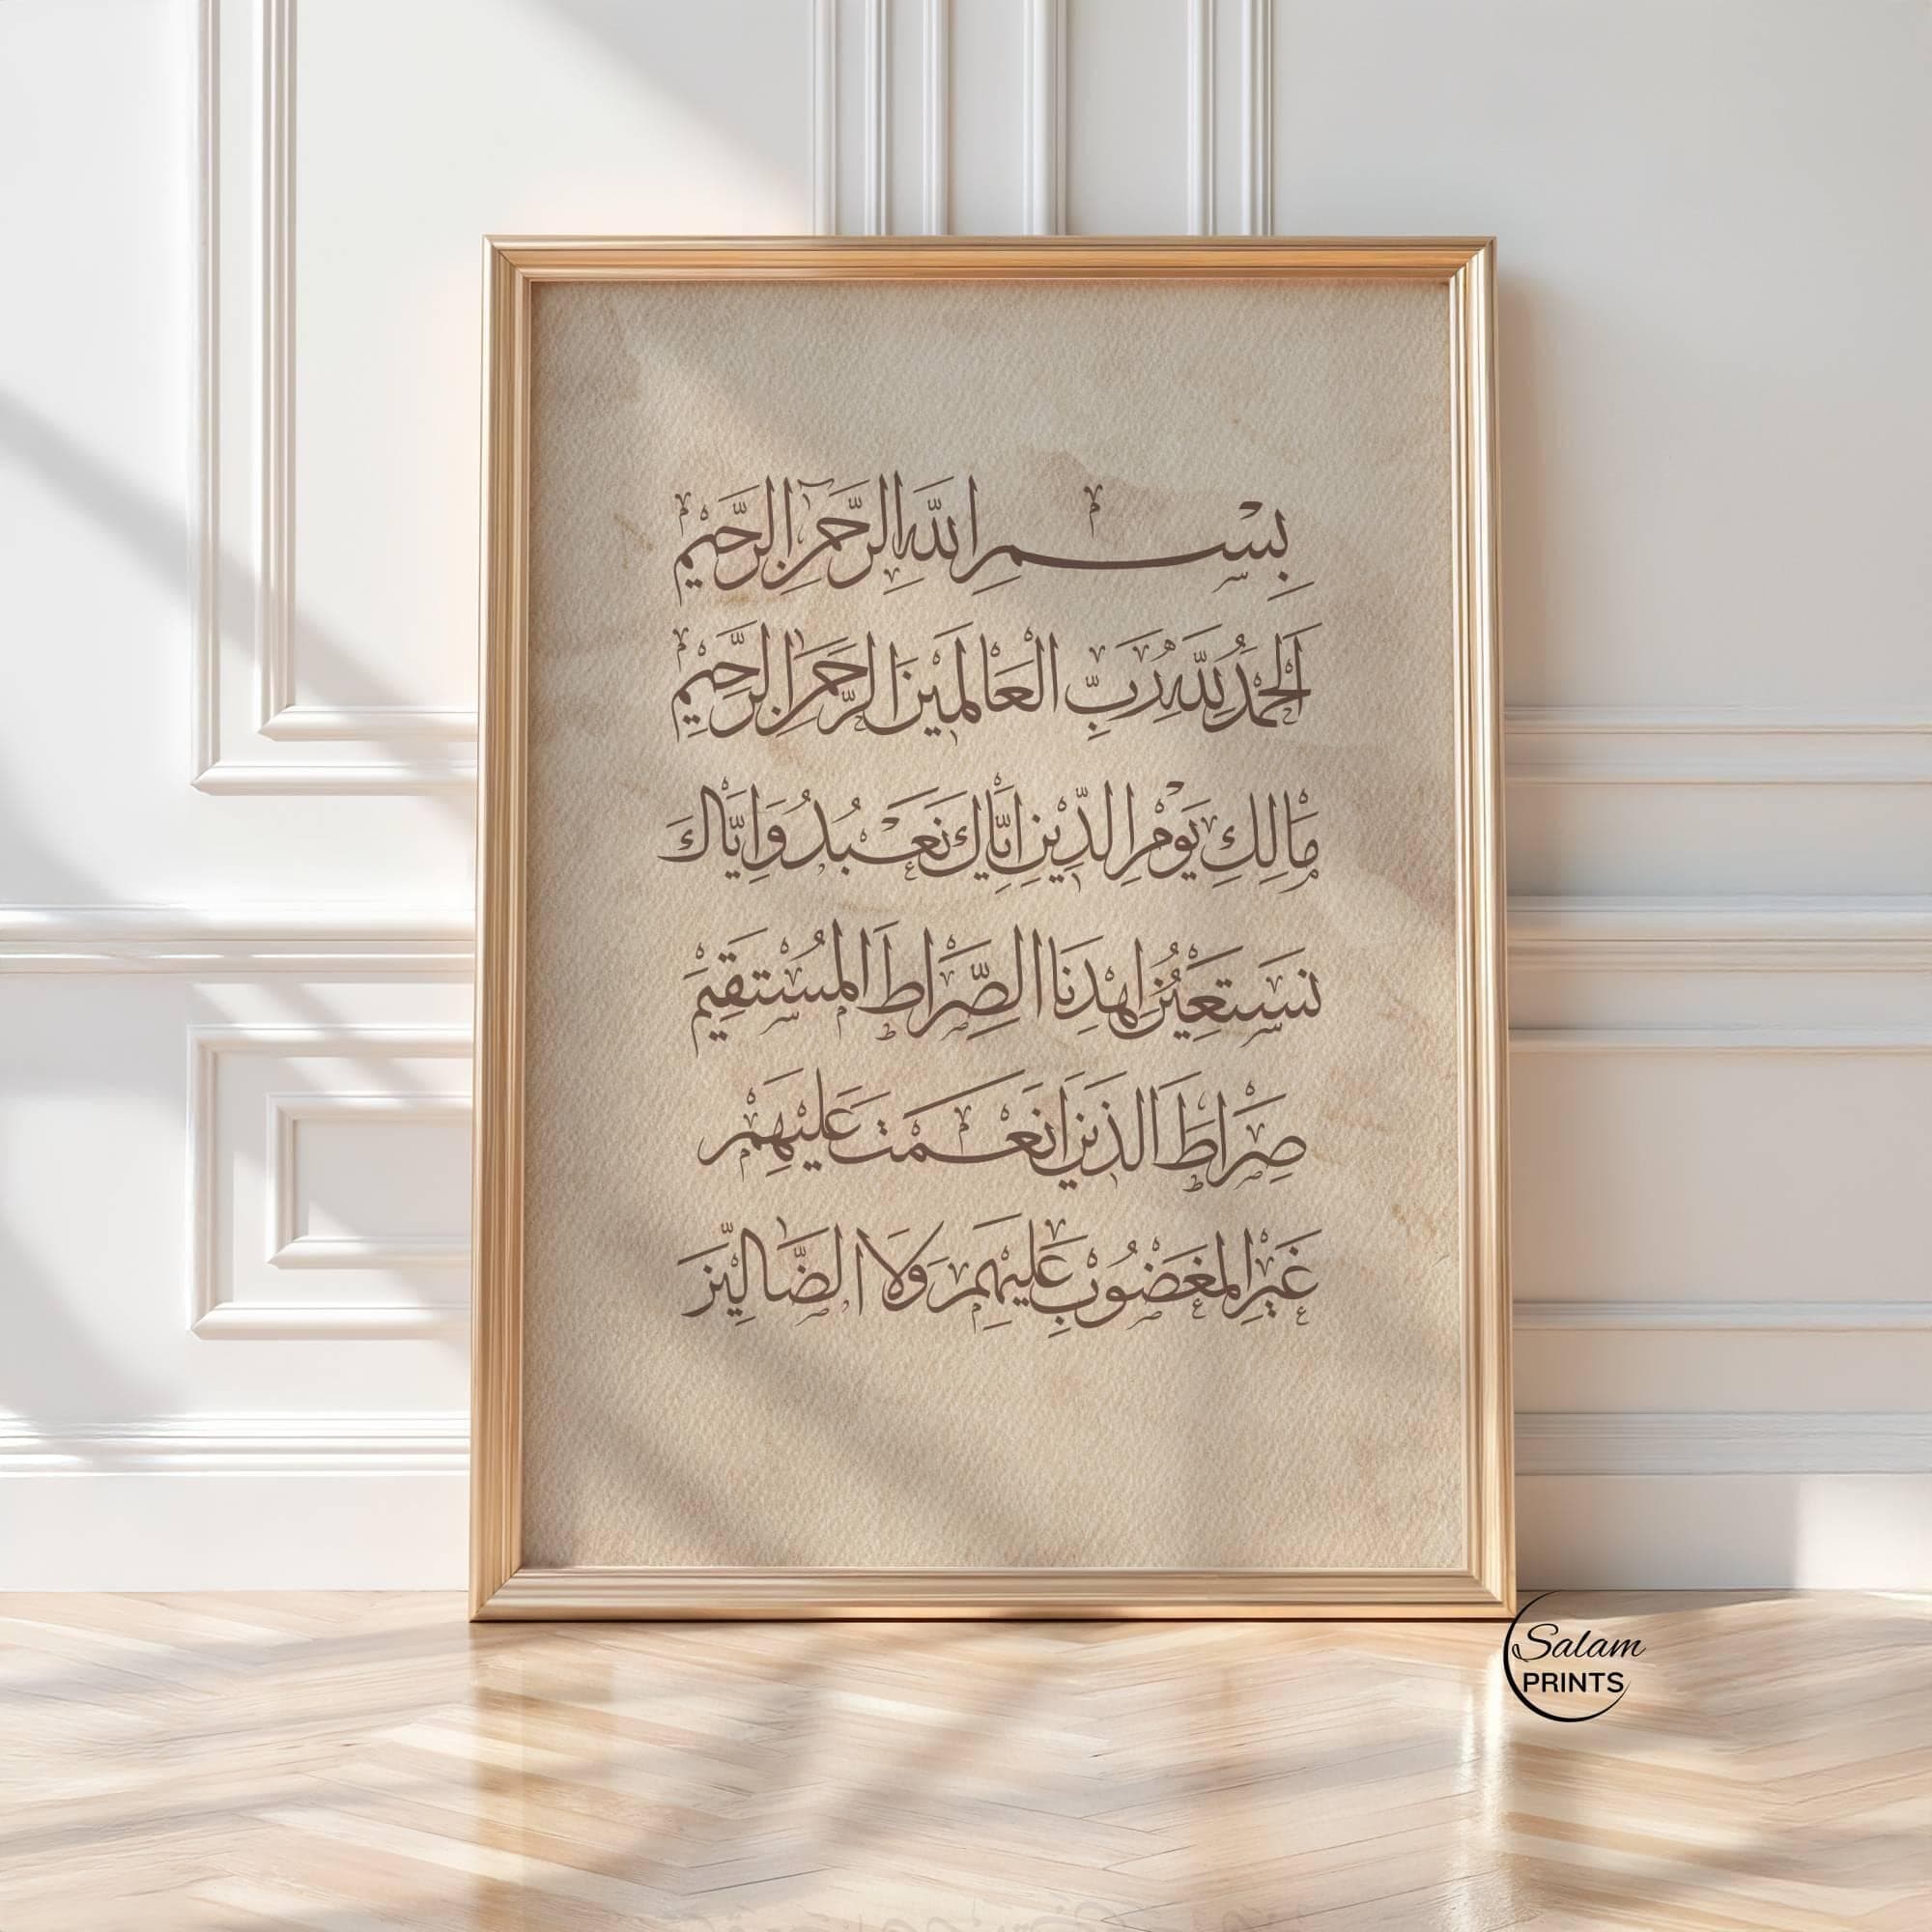 بِسْمِ اللَّهِ الرَّحْمَٰنِ الرَّحِيمِ
الْحَمْدُ لِلَّهِ رَبِّ الْعَالَمِينَ الرَّحْمَٰنِ الرَّحِيمِ
مَالِكِ يَوْمِ الدِّينِ إِيَّاكَ نَعْبُدُ وَإِيَّاكَ
نَسْتَعِينُ اهْدِنَا الصِّرَاطَ الْمُسْتَقِيمَ
صِرَاطَ الَّذِينَ أَنْعَمْتَ عَلَيْهِمْ
غَيْرِ الْمَغْضُوبِ عَلَيْهِمْ وَلَا الضَّالِّينَ
Salam
PRINTS